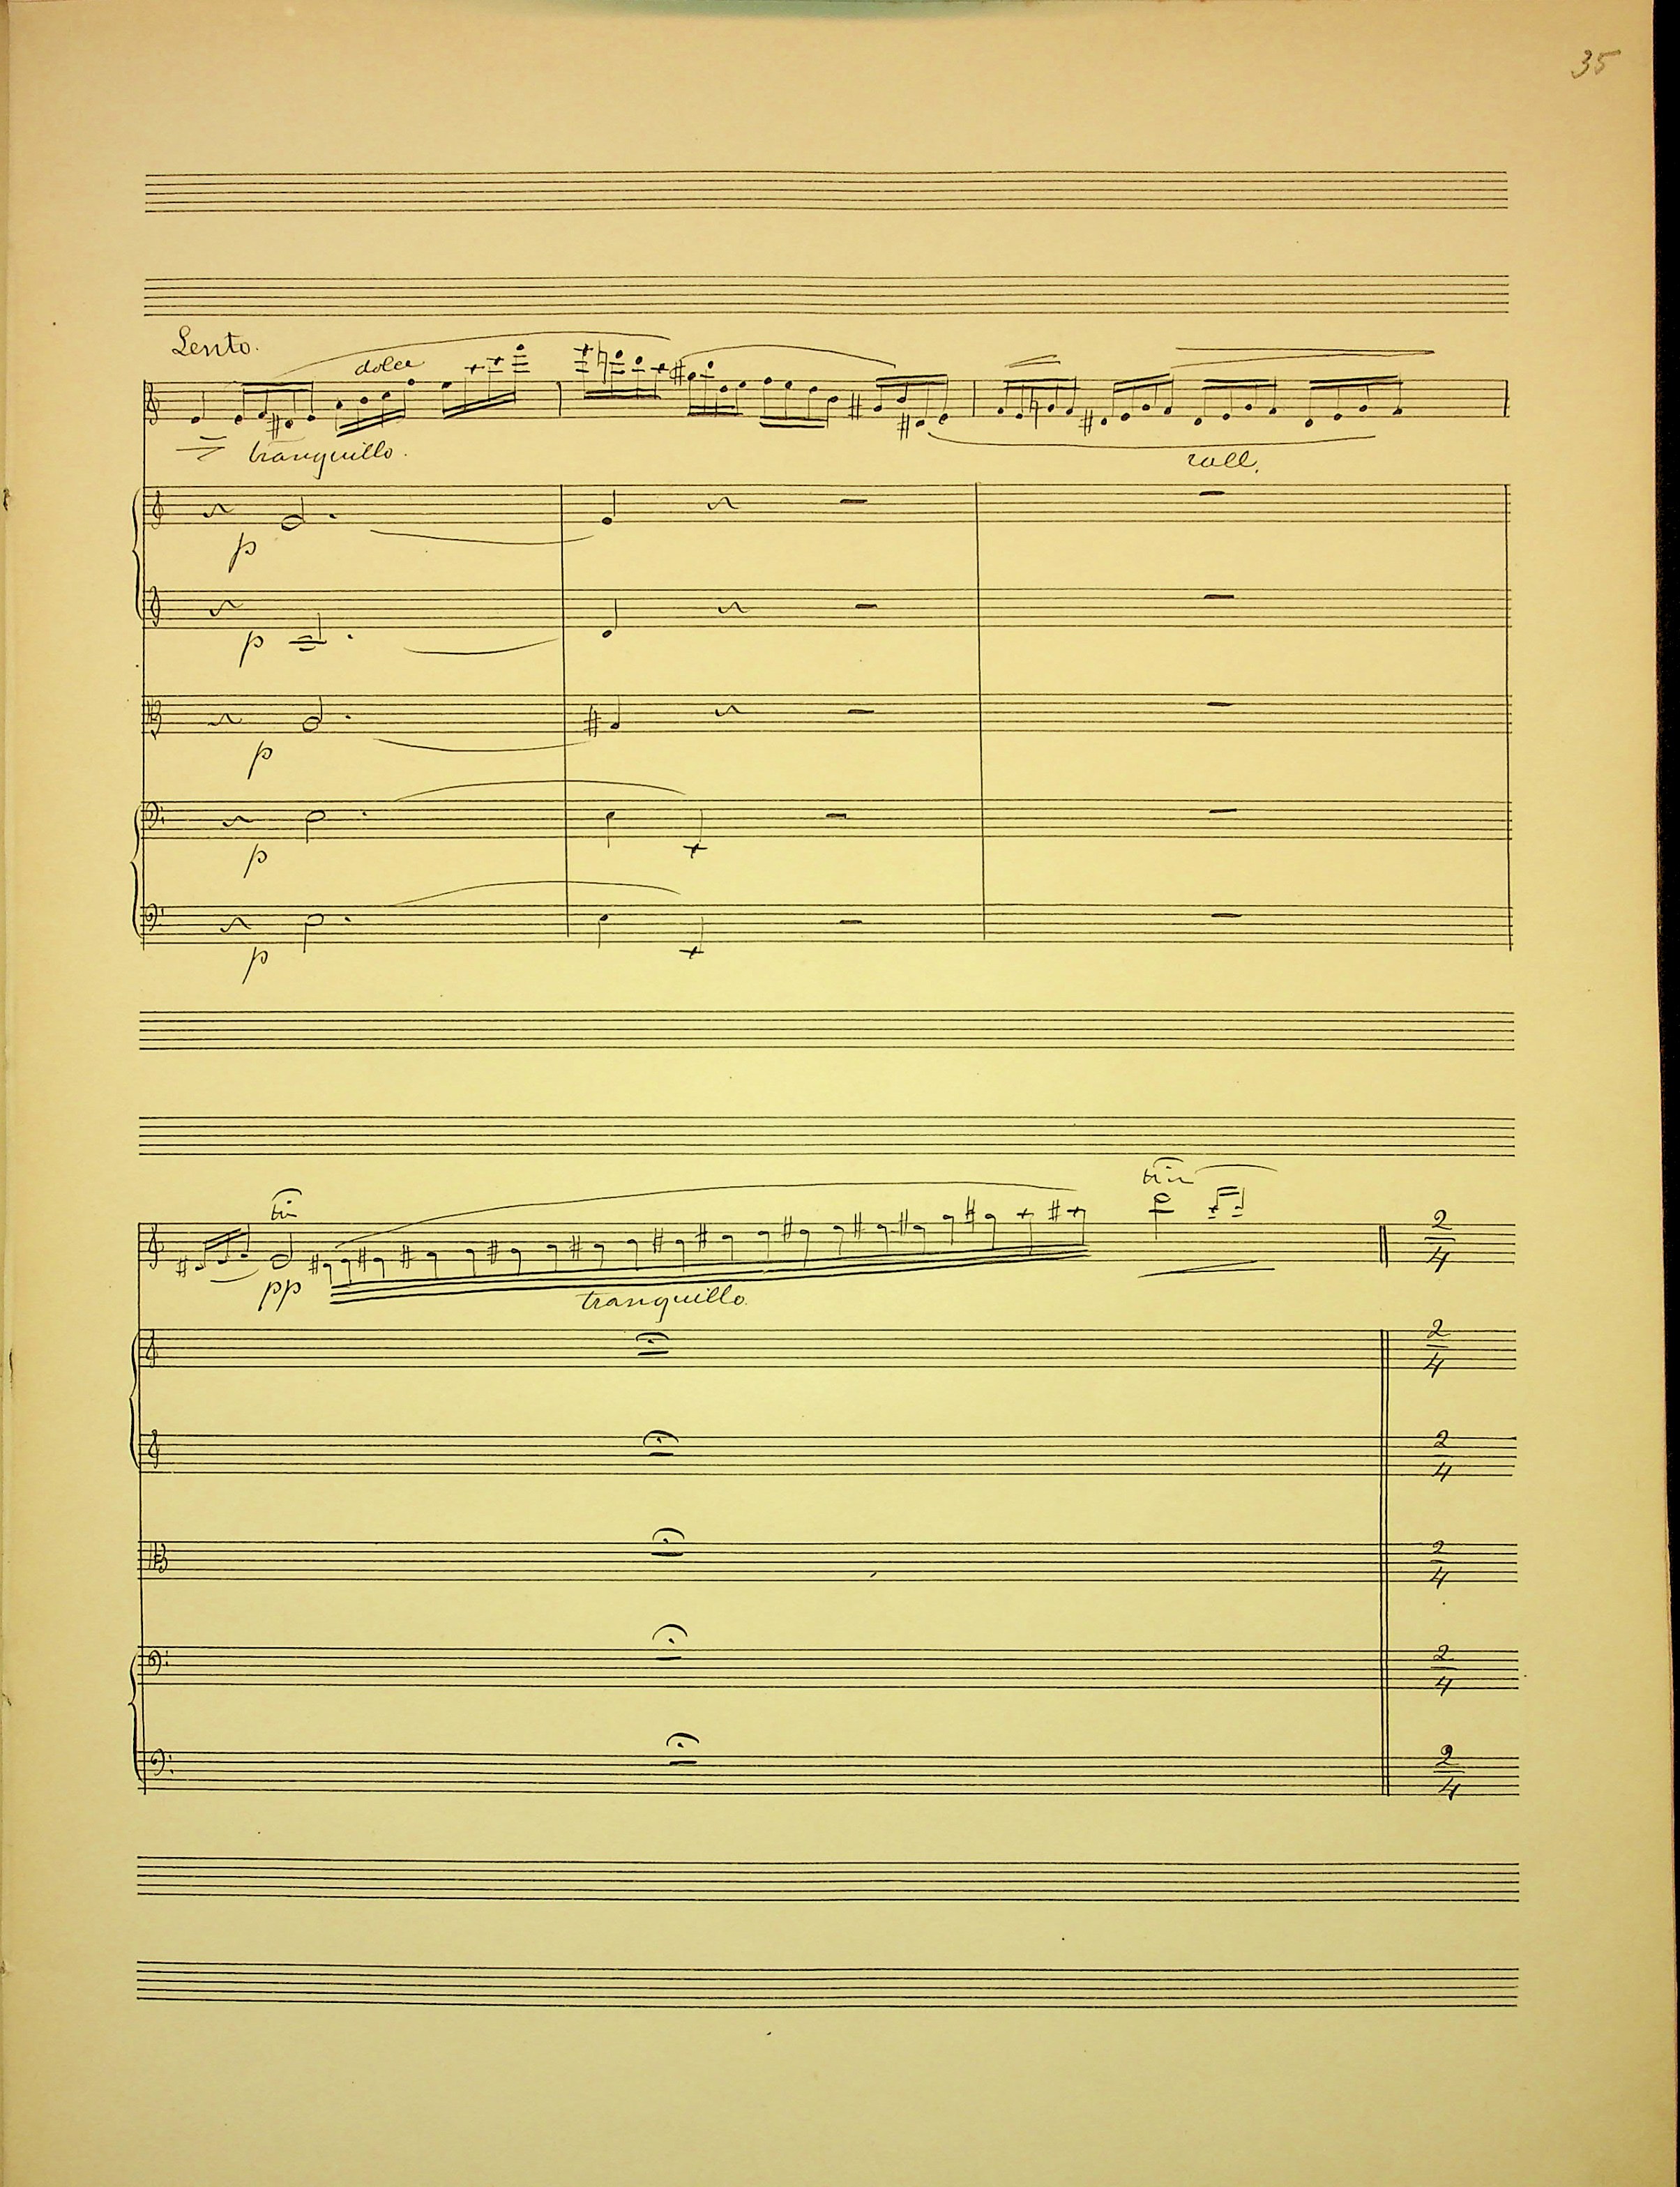 35
Lento.
dolce
tranquillo.
rall.
p
p
p
p
p
tr
tr
pp
tranquillo.
2
4
2
4
2
4
2
4
2
4
2
4